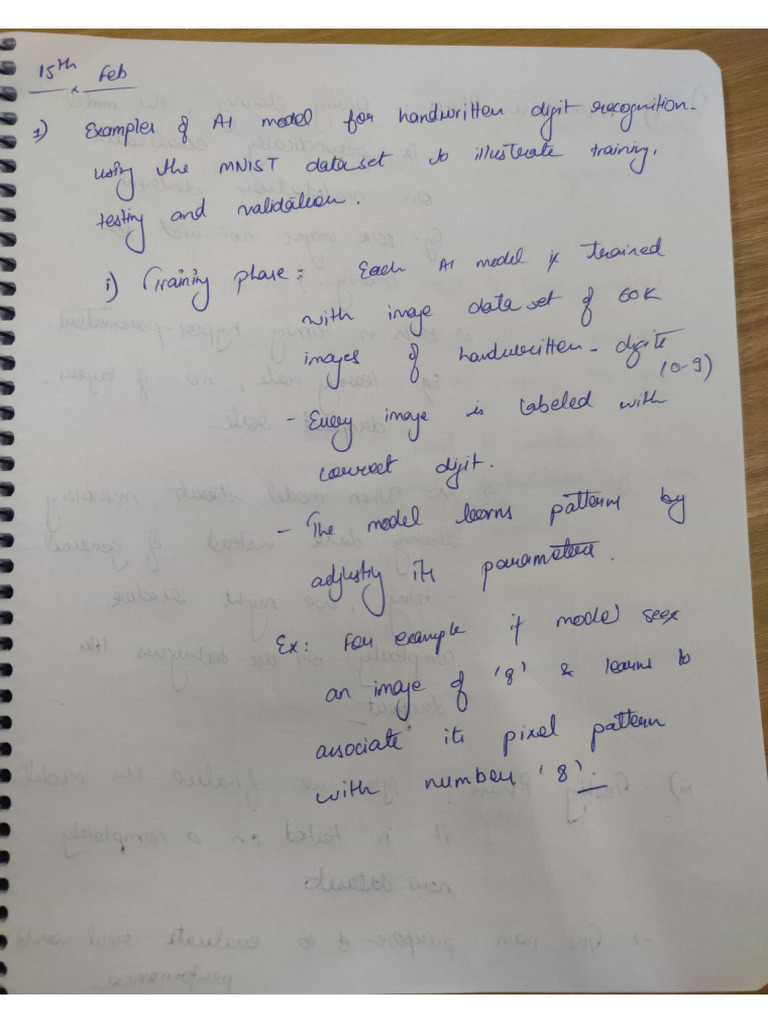 15th Feb
1) Examples of AI model for handwritten digit recognition.
using the MNIST dataset to illustrate training,
testing and validation.
i) Training phase: Each AI model is trained
with image data set of 60K
images of handwritten digits
(0-9)
- Every image is labeled with
correct digit.
- The model learns pattern by
adjusting its parameters.
Ex: For example if model sees
an image of '8' & learns to
associate its pixel pattern
with number '8'